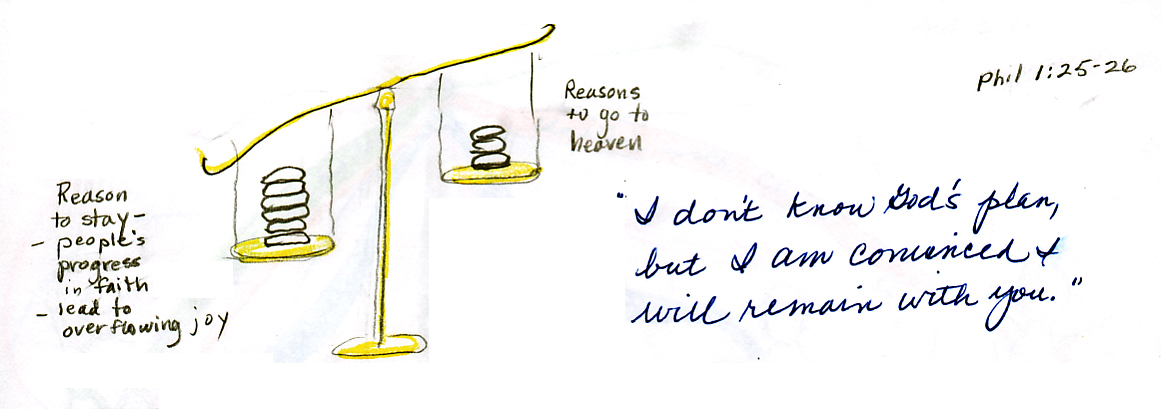 Reasons
to go to
heaven
Phil 1:25-26
Reason
to stay-
- people's
progress
in faith
- lead to
overflowing joy
"I don't know God's plan,
but I am convinced I
will remain with you."